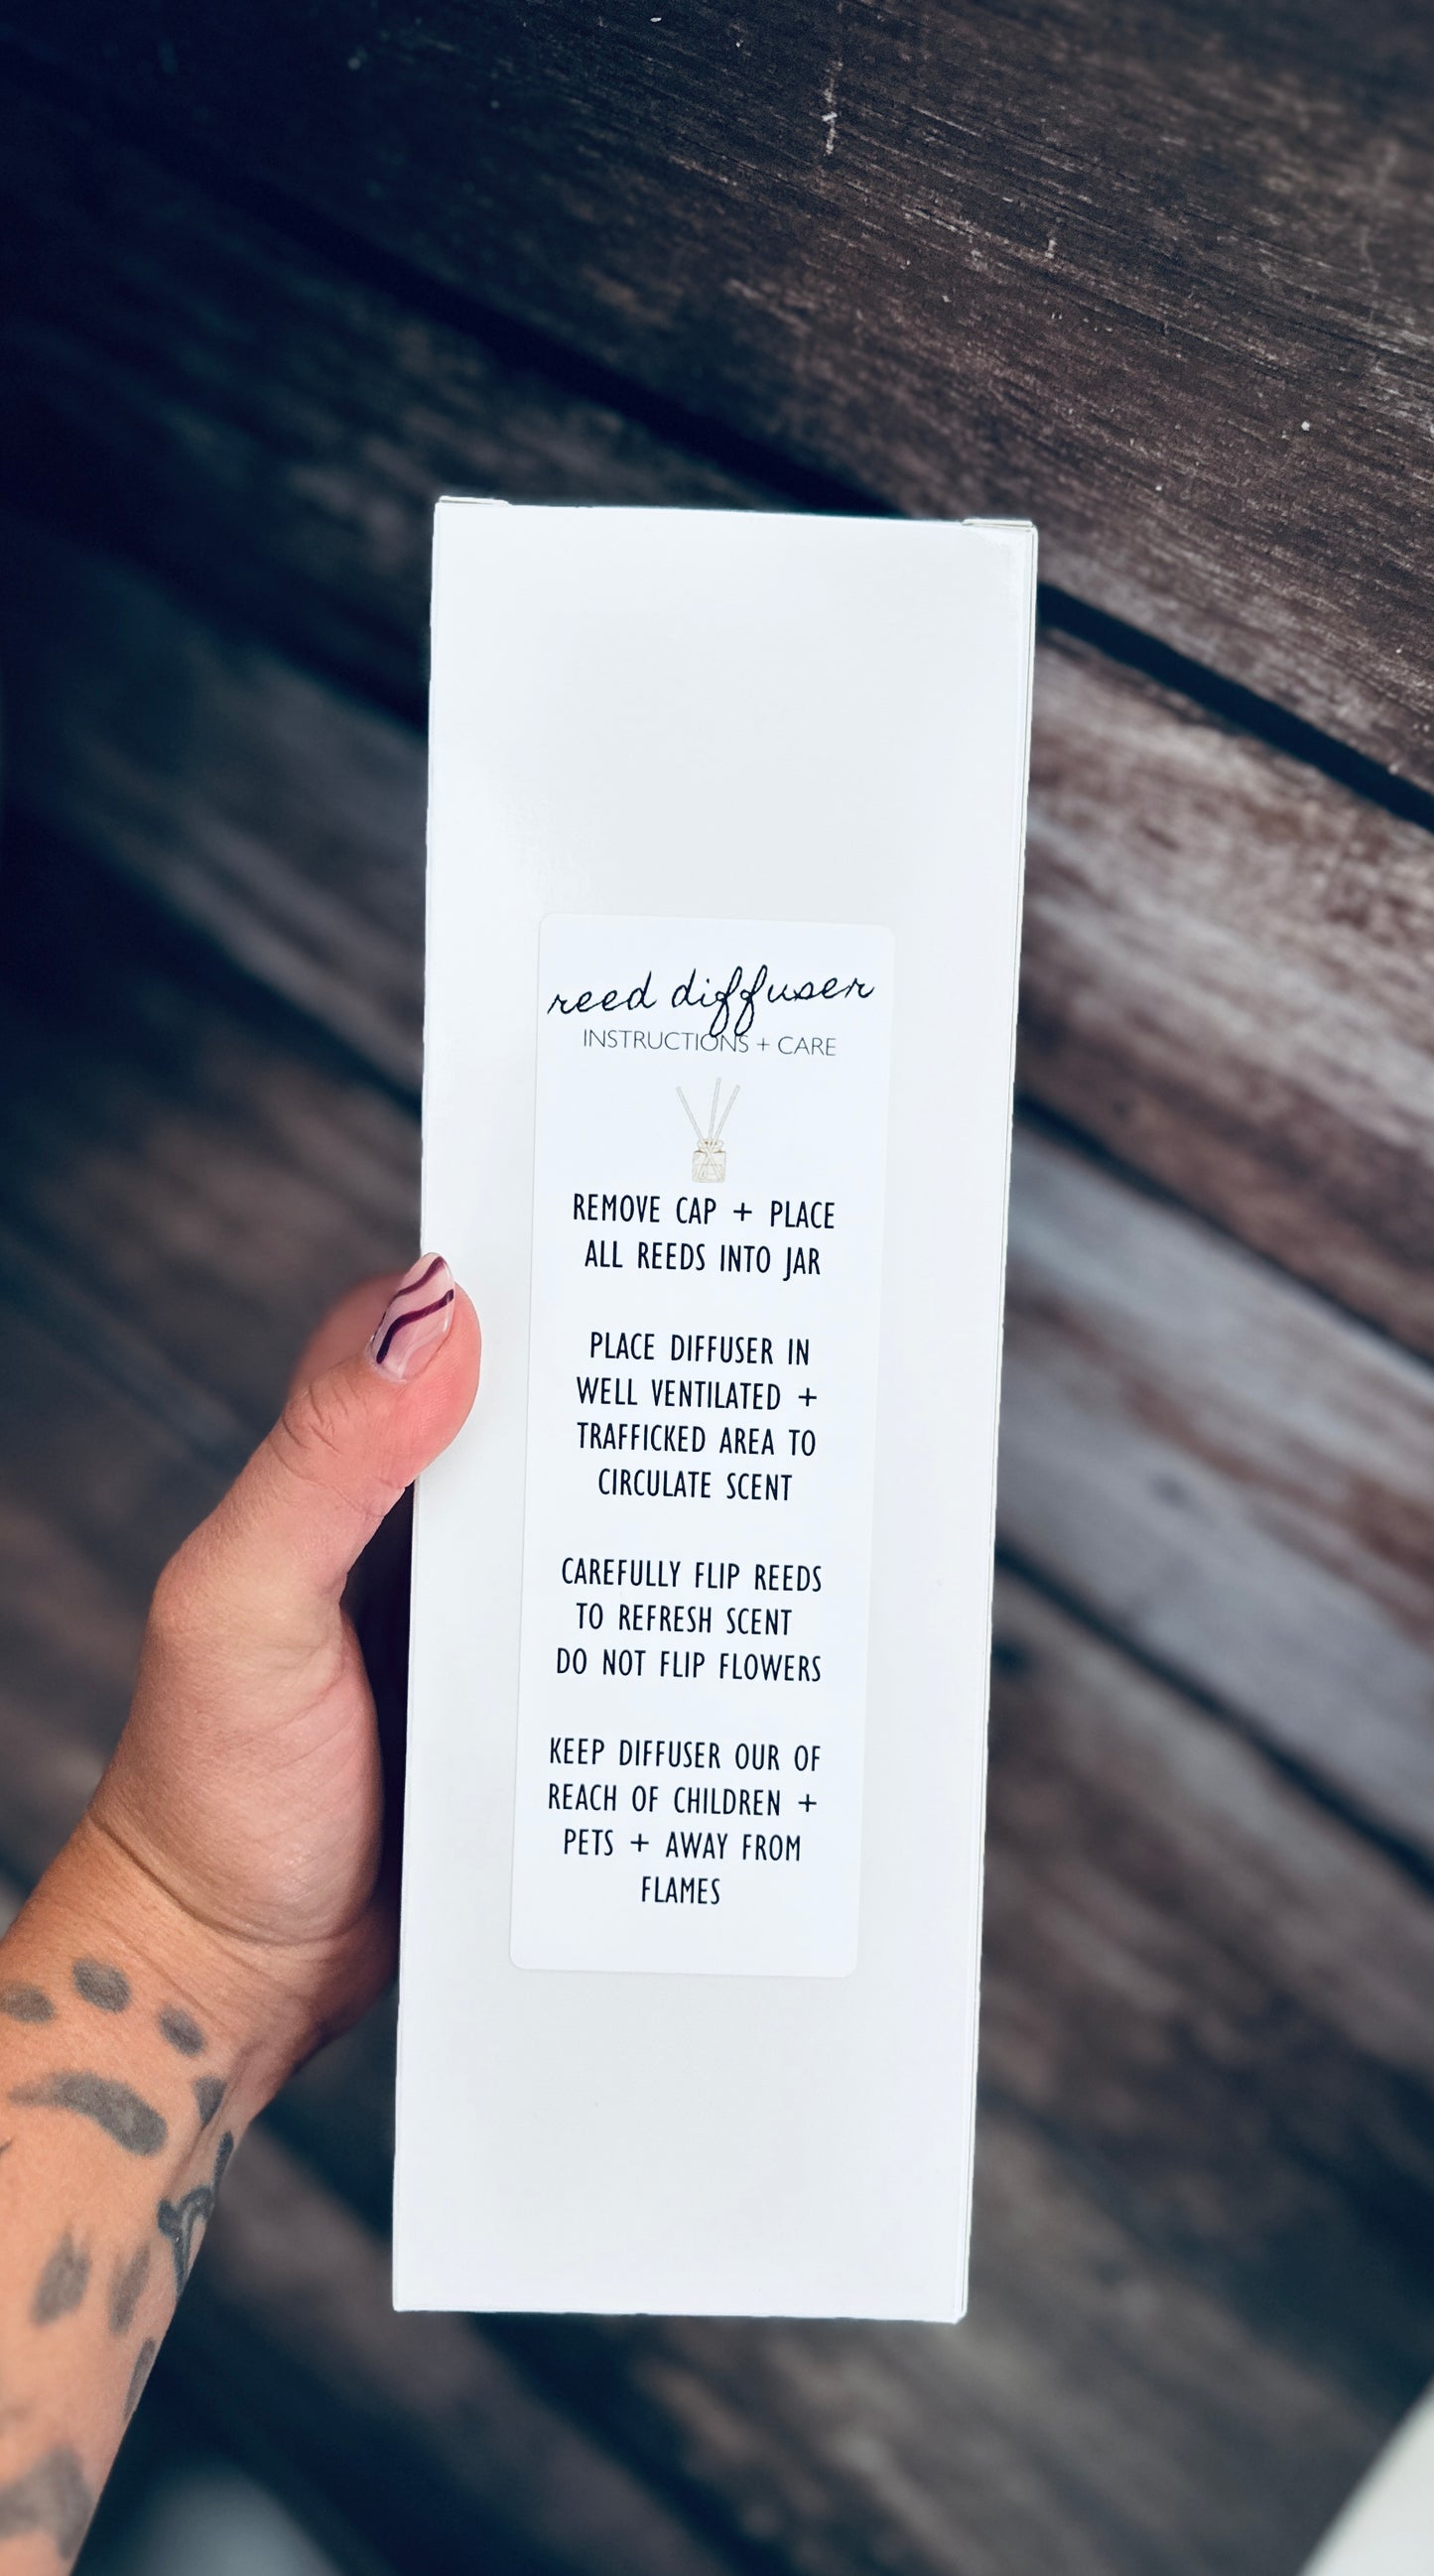 reed diffuser
INSTRUCTIONS + CARE
REMOVE CAP + PLACE
ALL REEDS INTO JAR
PLACE DIFFUSER IN
WELL VENTILATED +
TRAFFICKED AREA TO
CIRCULATE SCENT
CAREFULLY FLIP REEDS
TO REFRESH SCENT
DO NOT FLIP FLOWERS
KEEP DIFFUSER OUR OF
REACH OF CHILDREN +
PETS + AWAY FROM
FLAMES